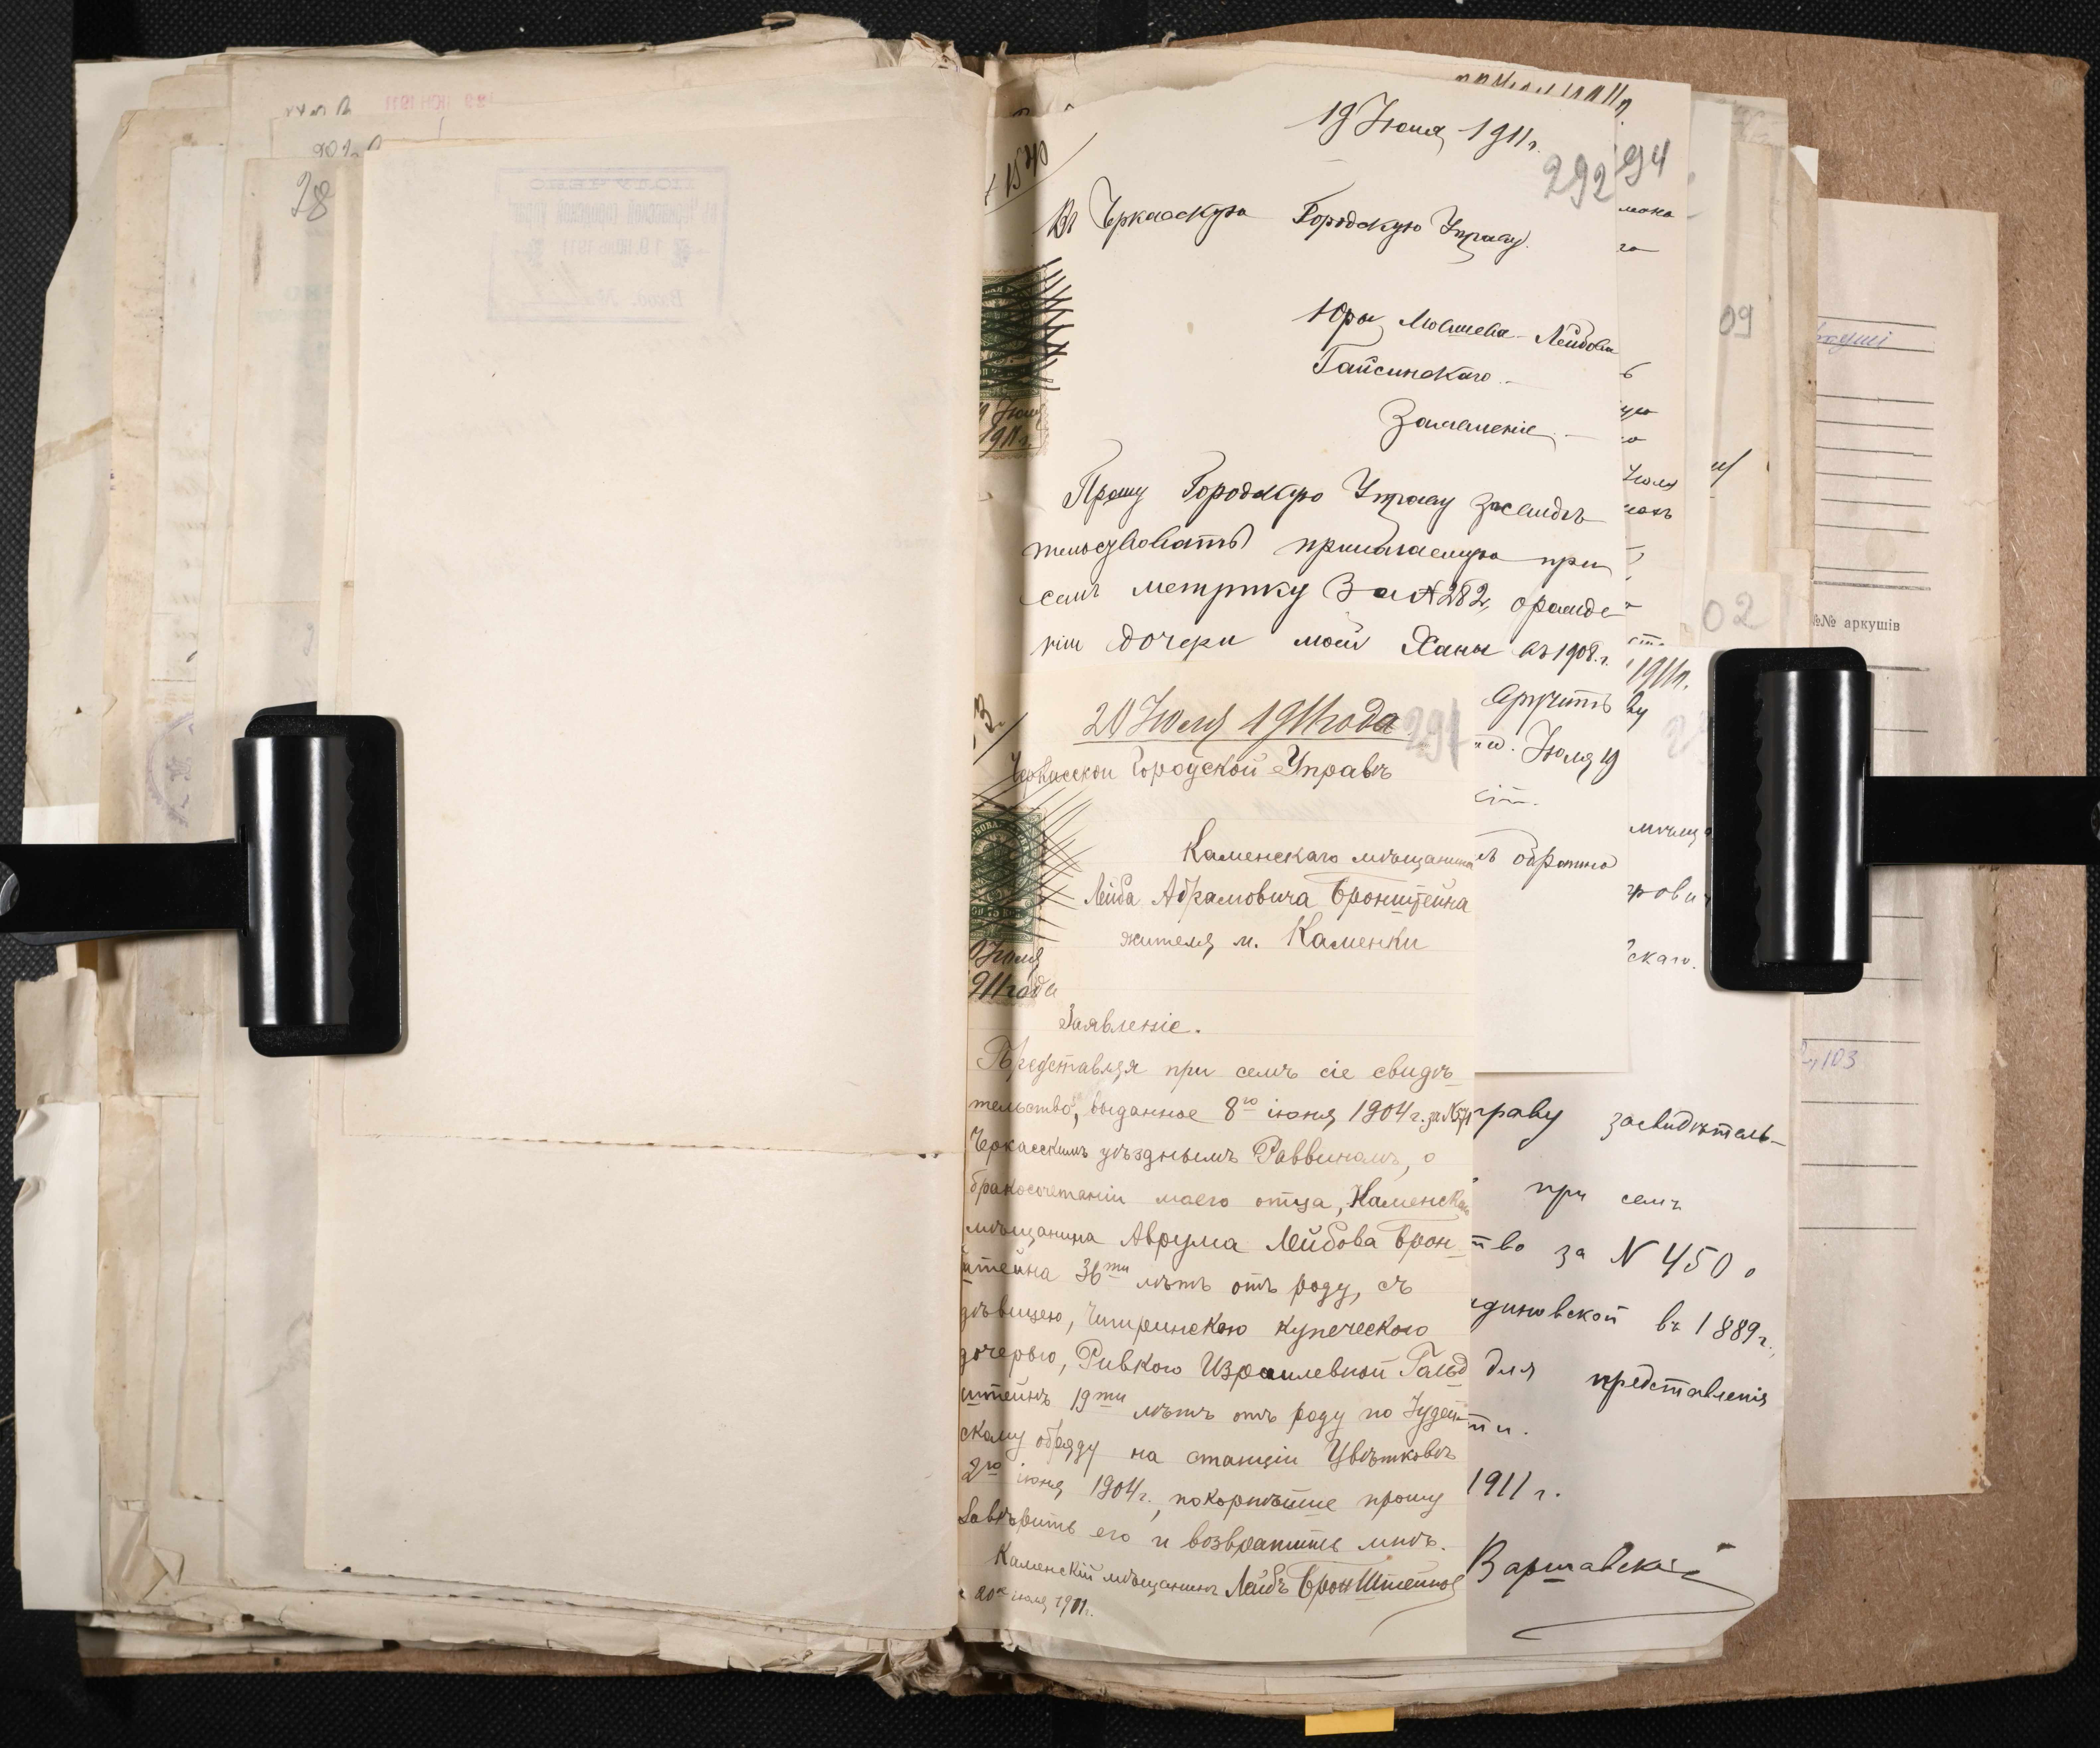 19 Июля 1911 г.
292
Въ Черкасскую Городскую Управу.
Юры Мовшева-Лейбова
Гайсинскаго.
Заявленіе.
Прошу Городскую Управу засвидѣ
тельствовать прилагаемую при
семъ метрику за № 282, о рожде
ніи дочери моей Ханы въ 1908 г.
вручить
Июля 19
обратно
20 Июля 1911 года
291
Черкасской Городской Управѣ
Каменскаго мѣщанина
Лейба Абрамовича Бронштейна
жителя м. Каменки
19 Июля
1911 г.
20 Июля
1911 года
Заявленіе.
Представляя при семъ сіе свидѣ
тельство, выданное 8го іюня 1904 г. за №
Черкасскимъ уѣзднымъ Раввиномъ, о
бракосочетаніи моего отца, Каменскаго
мѣщанина Аврума Лейбова Брон
штейна 36ти лѣтъ отъ роду, съ
дѣвицею, Чигиринскою купеческою
дочерью, Ривкою Израилевной Гольд
штейнъ 19ти лѣтъ отъ роду по Іудей
скому обряду на станціи Цвѣтковѣ
2го іюня 1904 г., покорнѣйше прошу
завѣрить его и возвратить мнѣ.
Каменскій мѣщанинъ Лейбъ Бронштейнъ
20го іюля 1911 г.
94
09
02
1911 г.
праву засвидѣтель-
при семъ
тво за № 450 о
диновской въ 1889 г.,
для представленія
ти.
1911 г.
Варшавскій
№№ аркушів
103